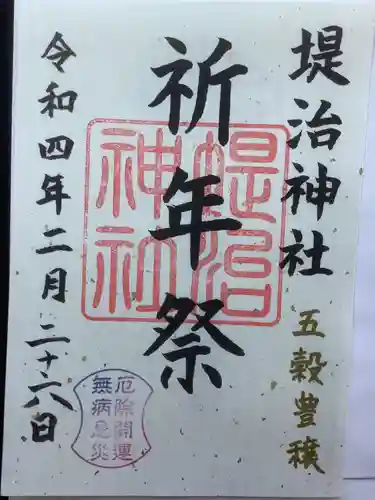 堤治神社
五穀豊穣
祈年祭
堤治神社
令和四年二月二十六日
厄除開運
無病息災